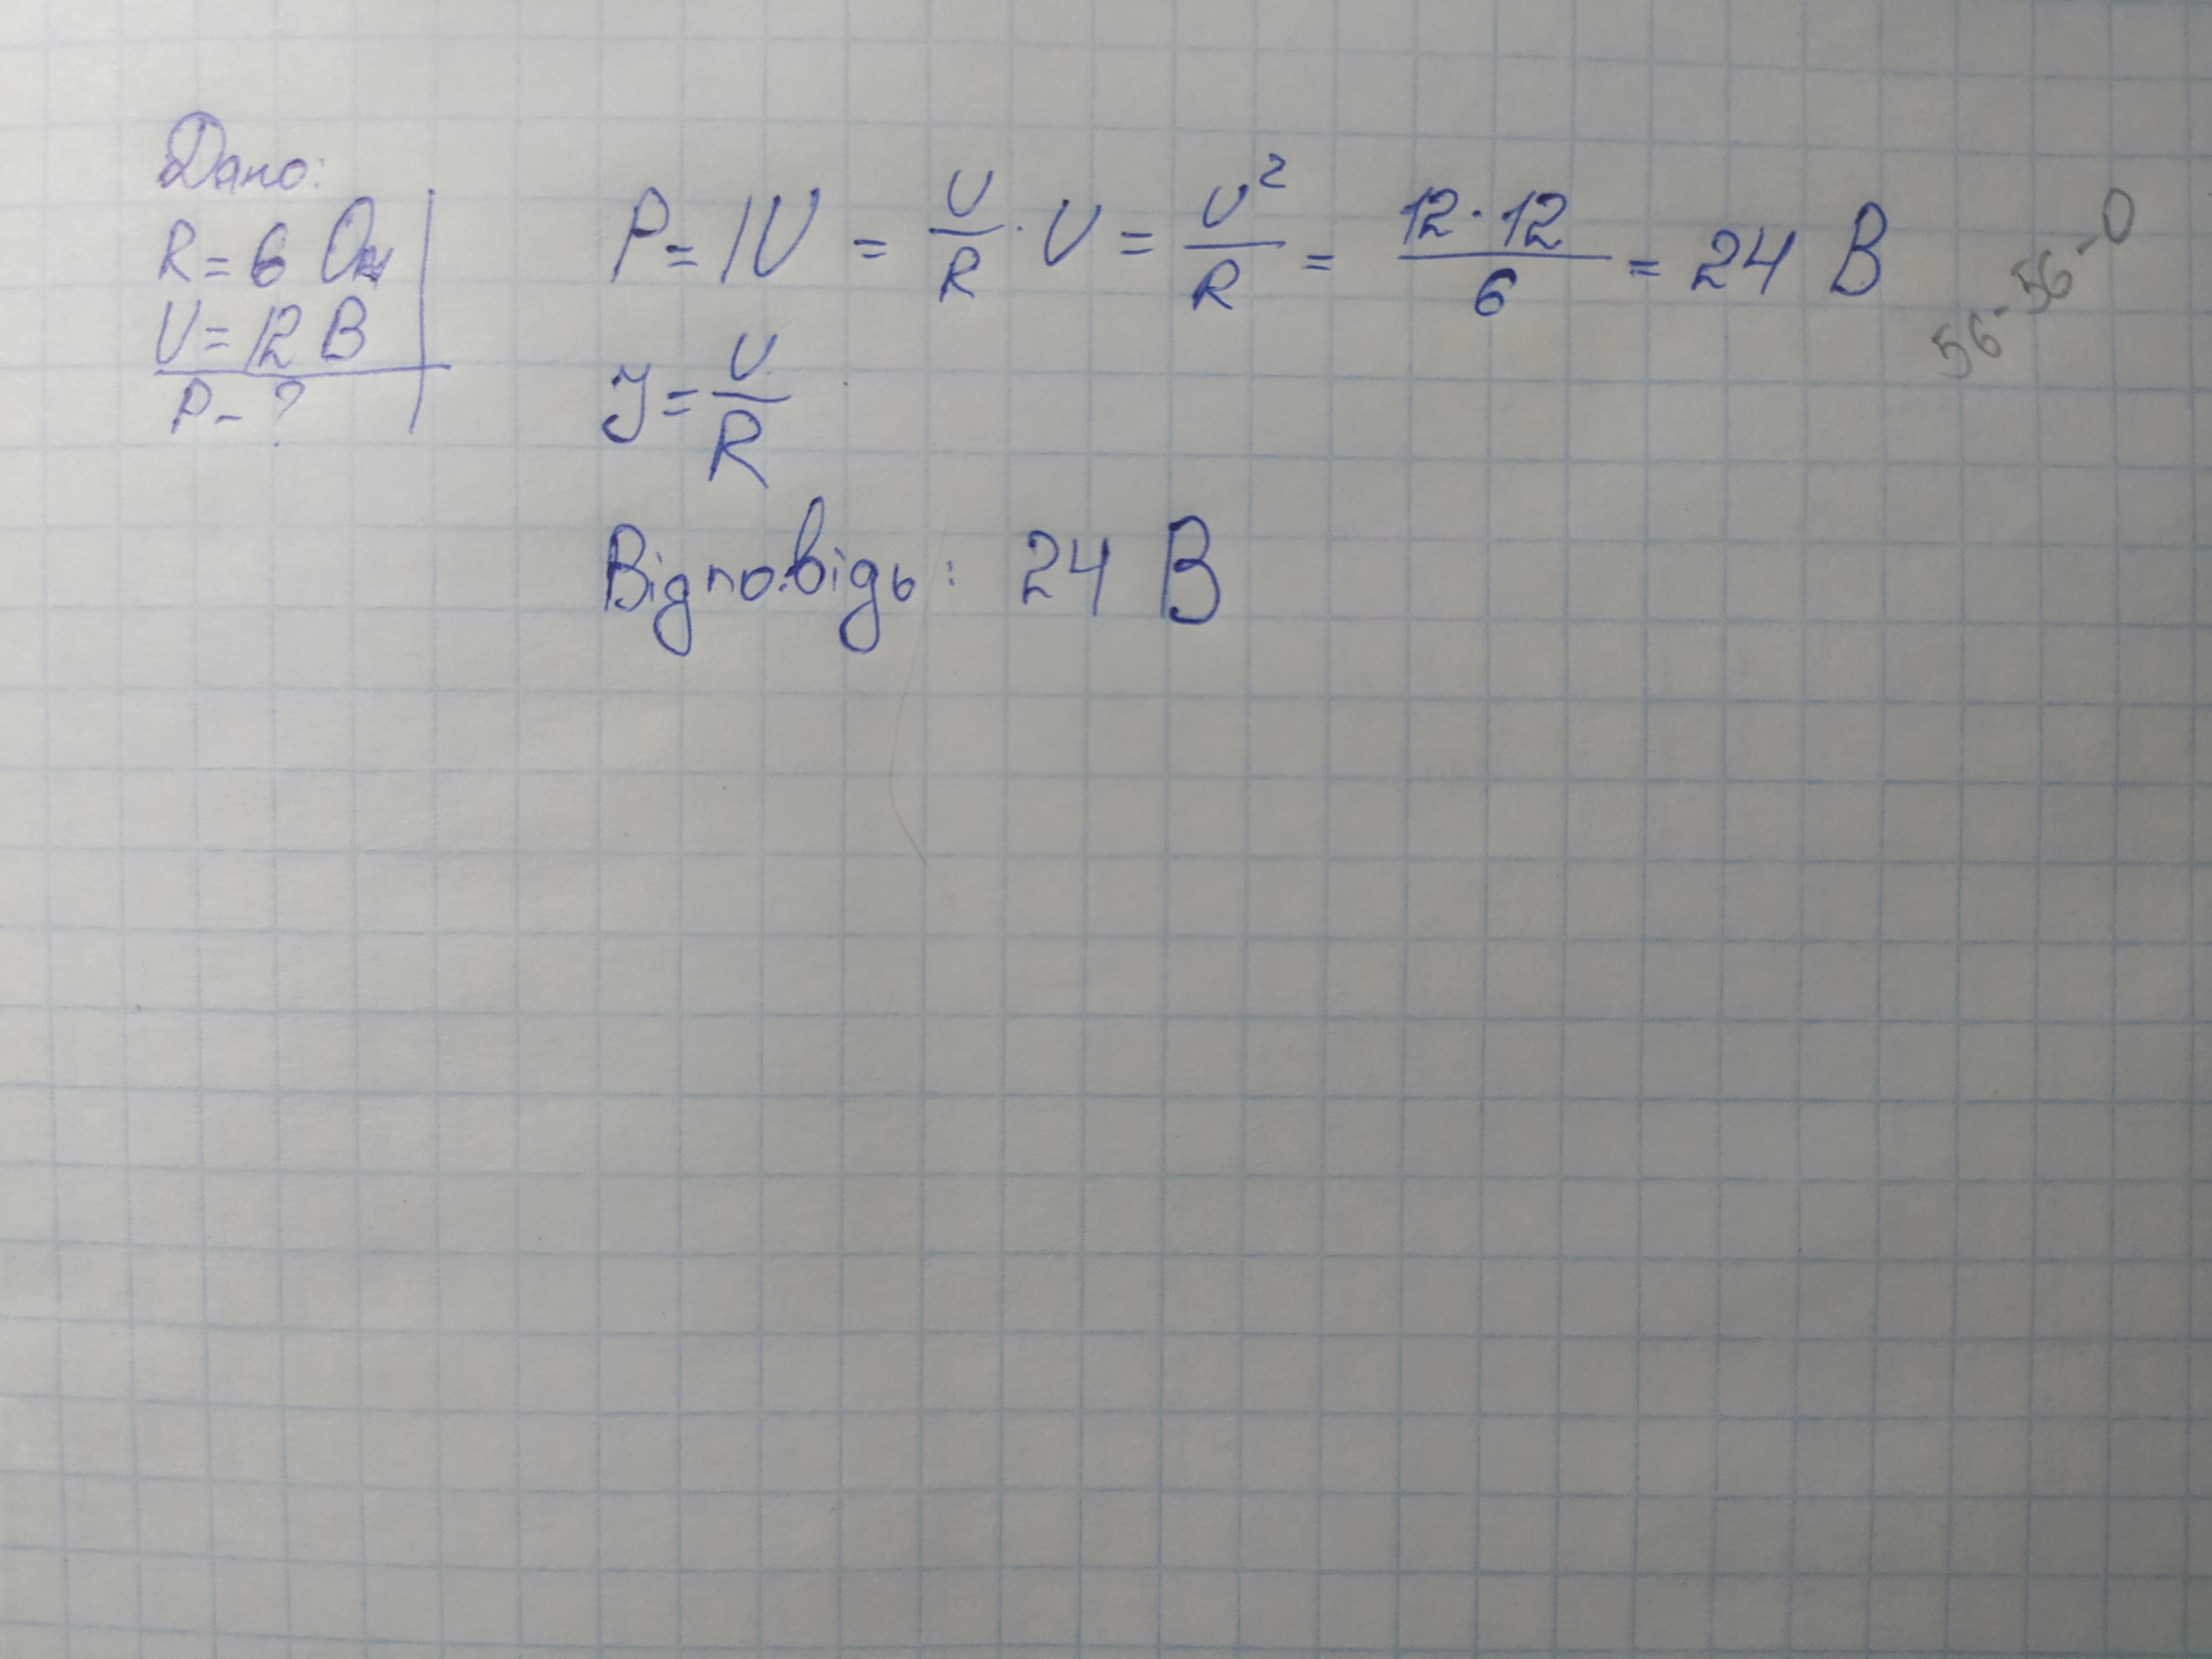 Дано:
R = 6 Ом
U = 12 В
P - ?
P = IU = U/R · U = U²/R = 12·12/6 = 24 В
I = U/R
Відповідь: 24 В
56-56-0